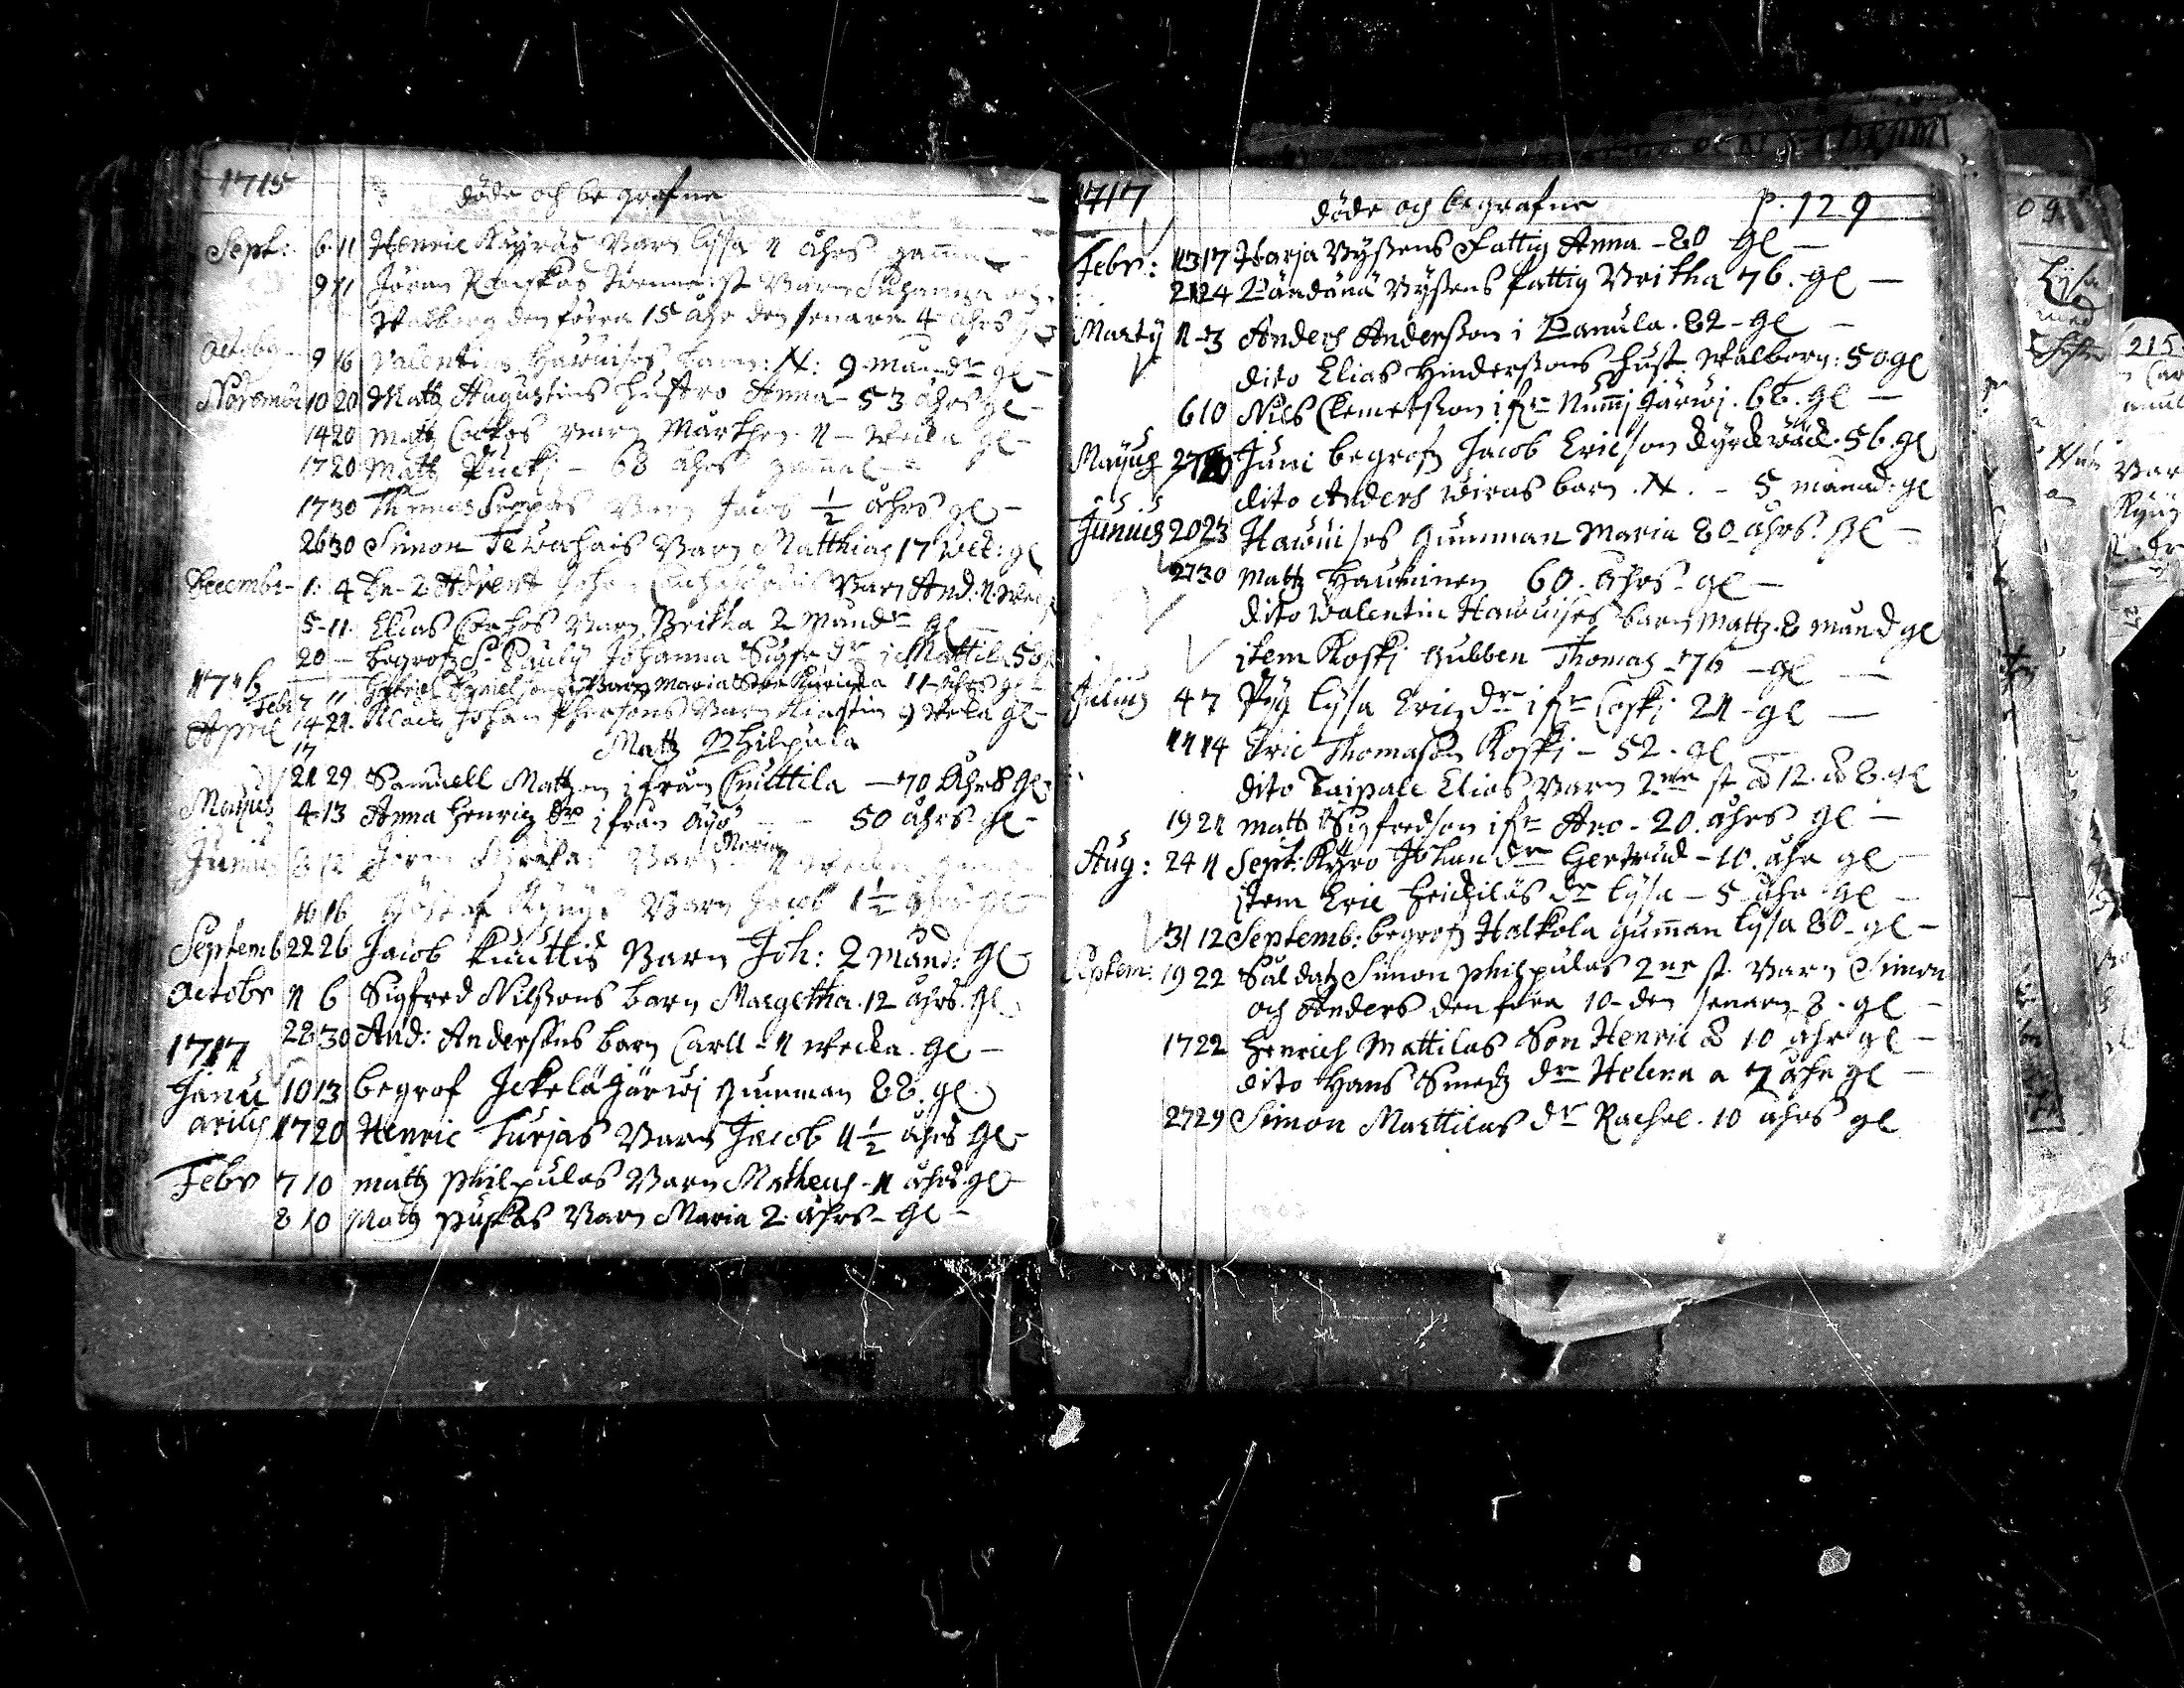 1715 döde och begrafne
Sept: 6 11 Henric Käyräs Barn Lysa 11 åhrs gammal
9 11 Jöran st Barn Susanna och
Walborg den förra 15 åhr den senare 4 åhrs gl
Octobr 9 16 Valentins Hawuises barn: N: 9 mån gl
Novemb 10 20 Mattz Augustins hustro Anna - 53 åhrs gl -
14 20 Mattz Cockos Barn Marthen 11 - wecka gl -
17 20 Mattz Pucki - 68 åhrs gammal
17 30 Thomas Seppäs Barn Jacob ½ åhrs gl -
26 30 Simon Barn Matthias 17 weck: gl
Decemb - 1: 4 Dn - 2 Advent Johan Barn And. 11
5 - 11. Elias Corhos Barn Britha 2 Månd gl -
20 - begrofz S. Pauly Johanna Sigfr dr i Mattila 50
1716 Feb: 7 11 Gabriel Barn Maria 11 åhrs gl
April 14 21. Klaus Johan Barn Kirstin 9 weka gl -
17 Mattz Philpula
21 29. Samuell Mattzon ifrån Cnuttila - 70 åhrs gl -
Mayus 4 13 Anna Henrich dr ifrån Äyö - - 50 åhrs gl -
Junius 8 12 Jöran Barn Maria 11 wecka
16 16 Göstaf Barn Jacob 1½ åhrs gl -
Septemb 22 26 Jacob Knuttis Barn Joh: 2 månd: gl
Octobr 11 6 Sigfred Nilssons barn Margetha. 12 åhrs. gl
28 30 And: Anderssons barn Carll - 11 wecka. gl -
1717
Janu 10 13 begrof Ickeläjärwj gumman 88. gl.
arius 17 20 Henric Turjas Barn Jacob 11½ åhrs gl -
Febr 7 10 mattz philpulas Barn Matheus - 11 åhrs gl -
8 10 Mattz puskas Barn Maria 2 åhrs - gl -
1717 döde och begrafne p. 129
Febr: 13 17 Harja Byssens Fattig Anna - 80 gl -
21 24 Byssens fattig Britha 76. gl -
Marty 11 - 3 Anders Andersson i Panula. 82 - gl -
dito Elias Hinderssons hust. Walborg: 50 gl
6 10 Nils Clemetsson ifrn Nummijärwj. 66. gl -
Mayus 27 Juni begrofz Jacob Ericson 56. gl
dito Anders Wiras barn. N. - 5 månad: gl
Junius 20 23 Hawuises gumman Maria 80 åhrs. gl -
27 30 Mattz Haukinen 60. åhrs - gl -
dito Walentin Hawuises barn Mattz. 8 månd gl
item Koskj gubben Thomas - 76 - gl -
Julius 4 7 Pyg Lysa Erichz dr ifrn Coskj 21 - gl -
11 14 Eric Thomason Koskj - 52. gl -
dito Taipale Elias Barn 2ne st å 12. å 8. gl
19 21 mattz Sigfredson ifrn Aro - 20. åhrs gl -
Aug: 24 11 Sept: Kyro Johan dr Gertrud - 10. åhr gl -
item Eric Heickiläs dr Lysa - 5 åhr gl -
31 12 Septemb: begrofz Halkola gumman Lysa 80 - gl -
Septem: 19 22 Saldatz Simon philpulas 2ne st. Barn Simon
och Anders den förra 10 - den senare 8 - gl -
17 22 Henrich Mattilas Son Henric å 10 åhr gl -
dito Hans Smedz dr Helena a 7 åhr gl -
27 29 Simon Marttilas dr Rachel. 10 åhrs gl